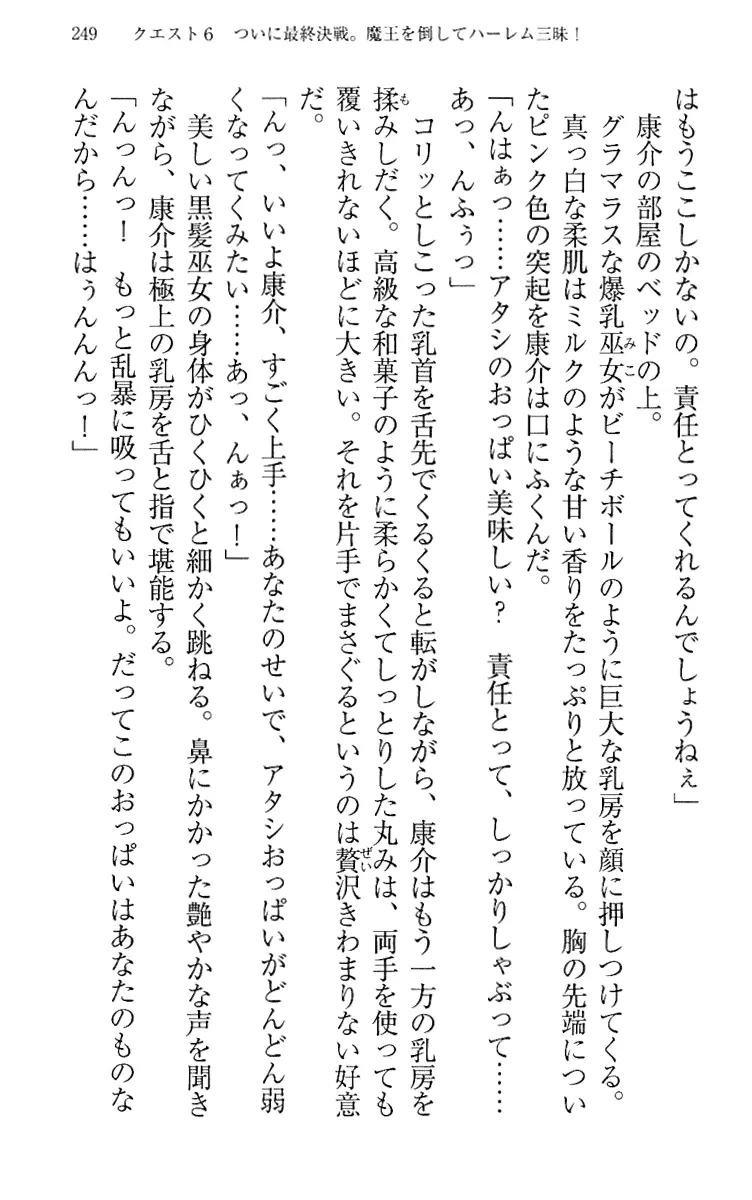 249　クエスト６　ついに最終決戦。魔王を倒してハーレム三昧！
はもうここしかないの。責任とってくれるんでしょうねぇ」
　康介の部屋のベッドの上。
　グラマラスな爆乳巫女がビーチボールのように巨大な乳房を顔に押しつけてくる。
　真っ白な柔肌はミルクのような甘い香りをたっぷりと放っている。胸の先端につい
たピンク色の突起を康介は口にふくんだ。
「んはぁっ……アタシのおっぱい美味しい？　責任とって、しっかりしゃぶって……
あっ、んふぅっ」
　コリッとしこった乳首を舌先でくるくると転がしながら、康介はもう一方の乳房を
揉みしだく。高級な和菓子のように柔らかくてしっとりした丸みは、両手を使っても
覆いきれないほどに大きい。それを片手でまさぐるというのは贅沢きわまりない好意
だ。
「んっ、いいよ康介、すごく上手……あなたのせいで、アタシおっぱいがどんどん弱
くなってくみたい……あっ、んぁっ！」
　美しい黒髪巫女の身体がひくひくと細かく跳ねる。鼻にかかった艶やかな声を聞き
ながら、康介は極上の乳房を舌と指で堪能する。
「んっんっ！　もっと乱暴に吸ってもいいよ。だってこのおっぱいはあなたのものな
んだから……はぅんんんっ！」